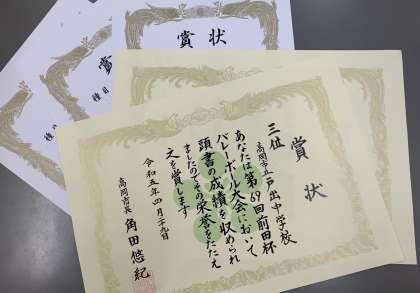 賞状
三位
高岡市立戸出中学校
あなたは第69回前田杯
バレーボール大会において
頭書の成績を収められ
ましたのでその栄誉をたたえ
文を賞します
令和五年四月二十九日
高岡市長 角田悠紀
賞状
賞
種目
種